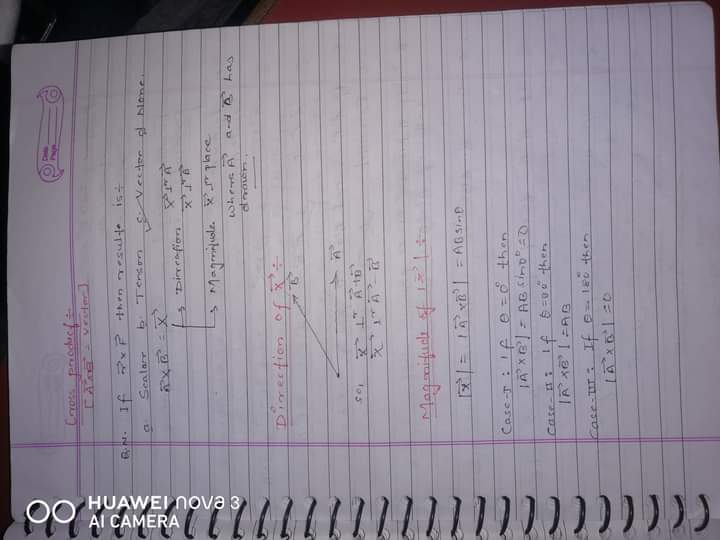 Date
Page
Cross product :-
[A⃗×B⃗ = vector]
Q.N. If r⃗×P⃗ then results is :-
a Scalar b. Tenson c. Vector d None.
A⃗×B⃗ = X⃗
→ Direction X⃗ ⊥ʳ A⃗
X⃗ ⊥ʳ A⃗
→ Magnitude X⃗ ⊥ʳ place
where A⃗ and B⃗ has
drawn.
Direction of X⃗ :-
B⃗
A⃗
so, X⃗ ⊥ʳ A⃗+B⃗
X⃗ ⊥ʳ A⃗ B⃗
Magnitude of |X⃗| :-
|X⃗| = |A⃗×B⃗| = AB sinθ
Case-I : If θ=0° then
|A⃗×B⃗| = AB sin0° = 0
Case-II : If θ=90° then
|A⃗×B⃗| = AB
Case-III : If θ=180° then
|A⃗×B⃗| = 0
HUAWEI nova 3
AI CAMERA